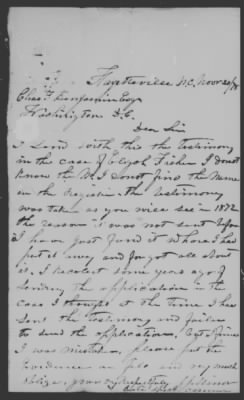 N.C. Nov 20/78
Chas. F. Benjamin Esq
Washington D.C.
Dear Sir
I send with this the testimony
in the case of Elijah Fisher I do not
know the No. I do not find the Name
in the Register the testimony
was taken as you will see in 1872
the reason it was not sent before
I have just found it where I had
put it away and forgot all about
it. I recolect some years ago
sending the application in the
case I thought at the time I had
sent the testimony and failed
to send the application. but I find
I was mistaken, please put the
evidence on file and very much
oblige. your very respectfully